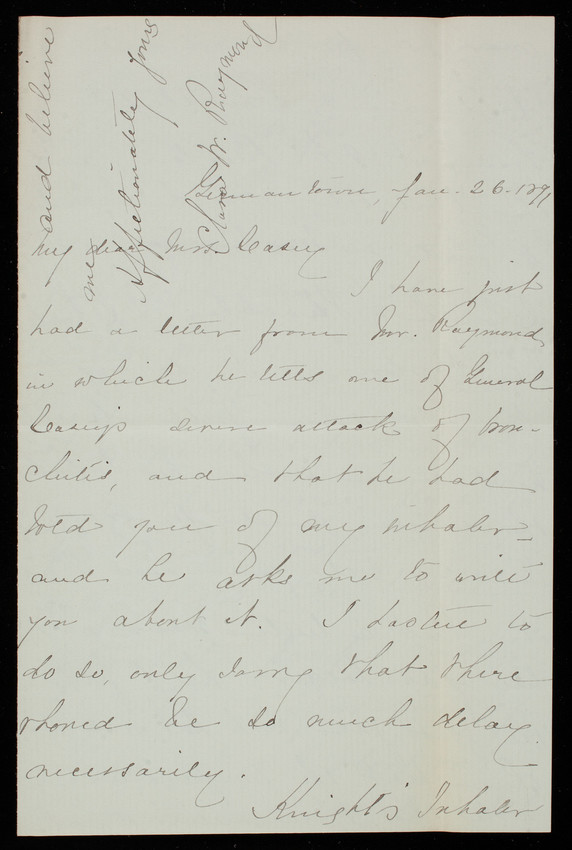 Germantown, Jan. 26. 1891
My dear Mrs. Casey
I have just
had a letter from Mr. Raymond,
in which he tells me of General
Casey's severe attack of bron-
chitis, and that he had
told you of my inhaler_
and he asks me to write
you about it. I hasten to
do so, only sorry that there
should be so much delay
necessarily.
Knight's Inhaler
and believe
me
Affectionately yours
Clara W. Raymond